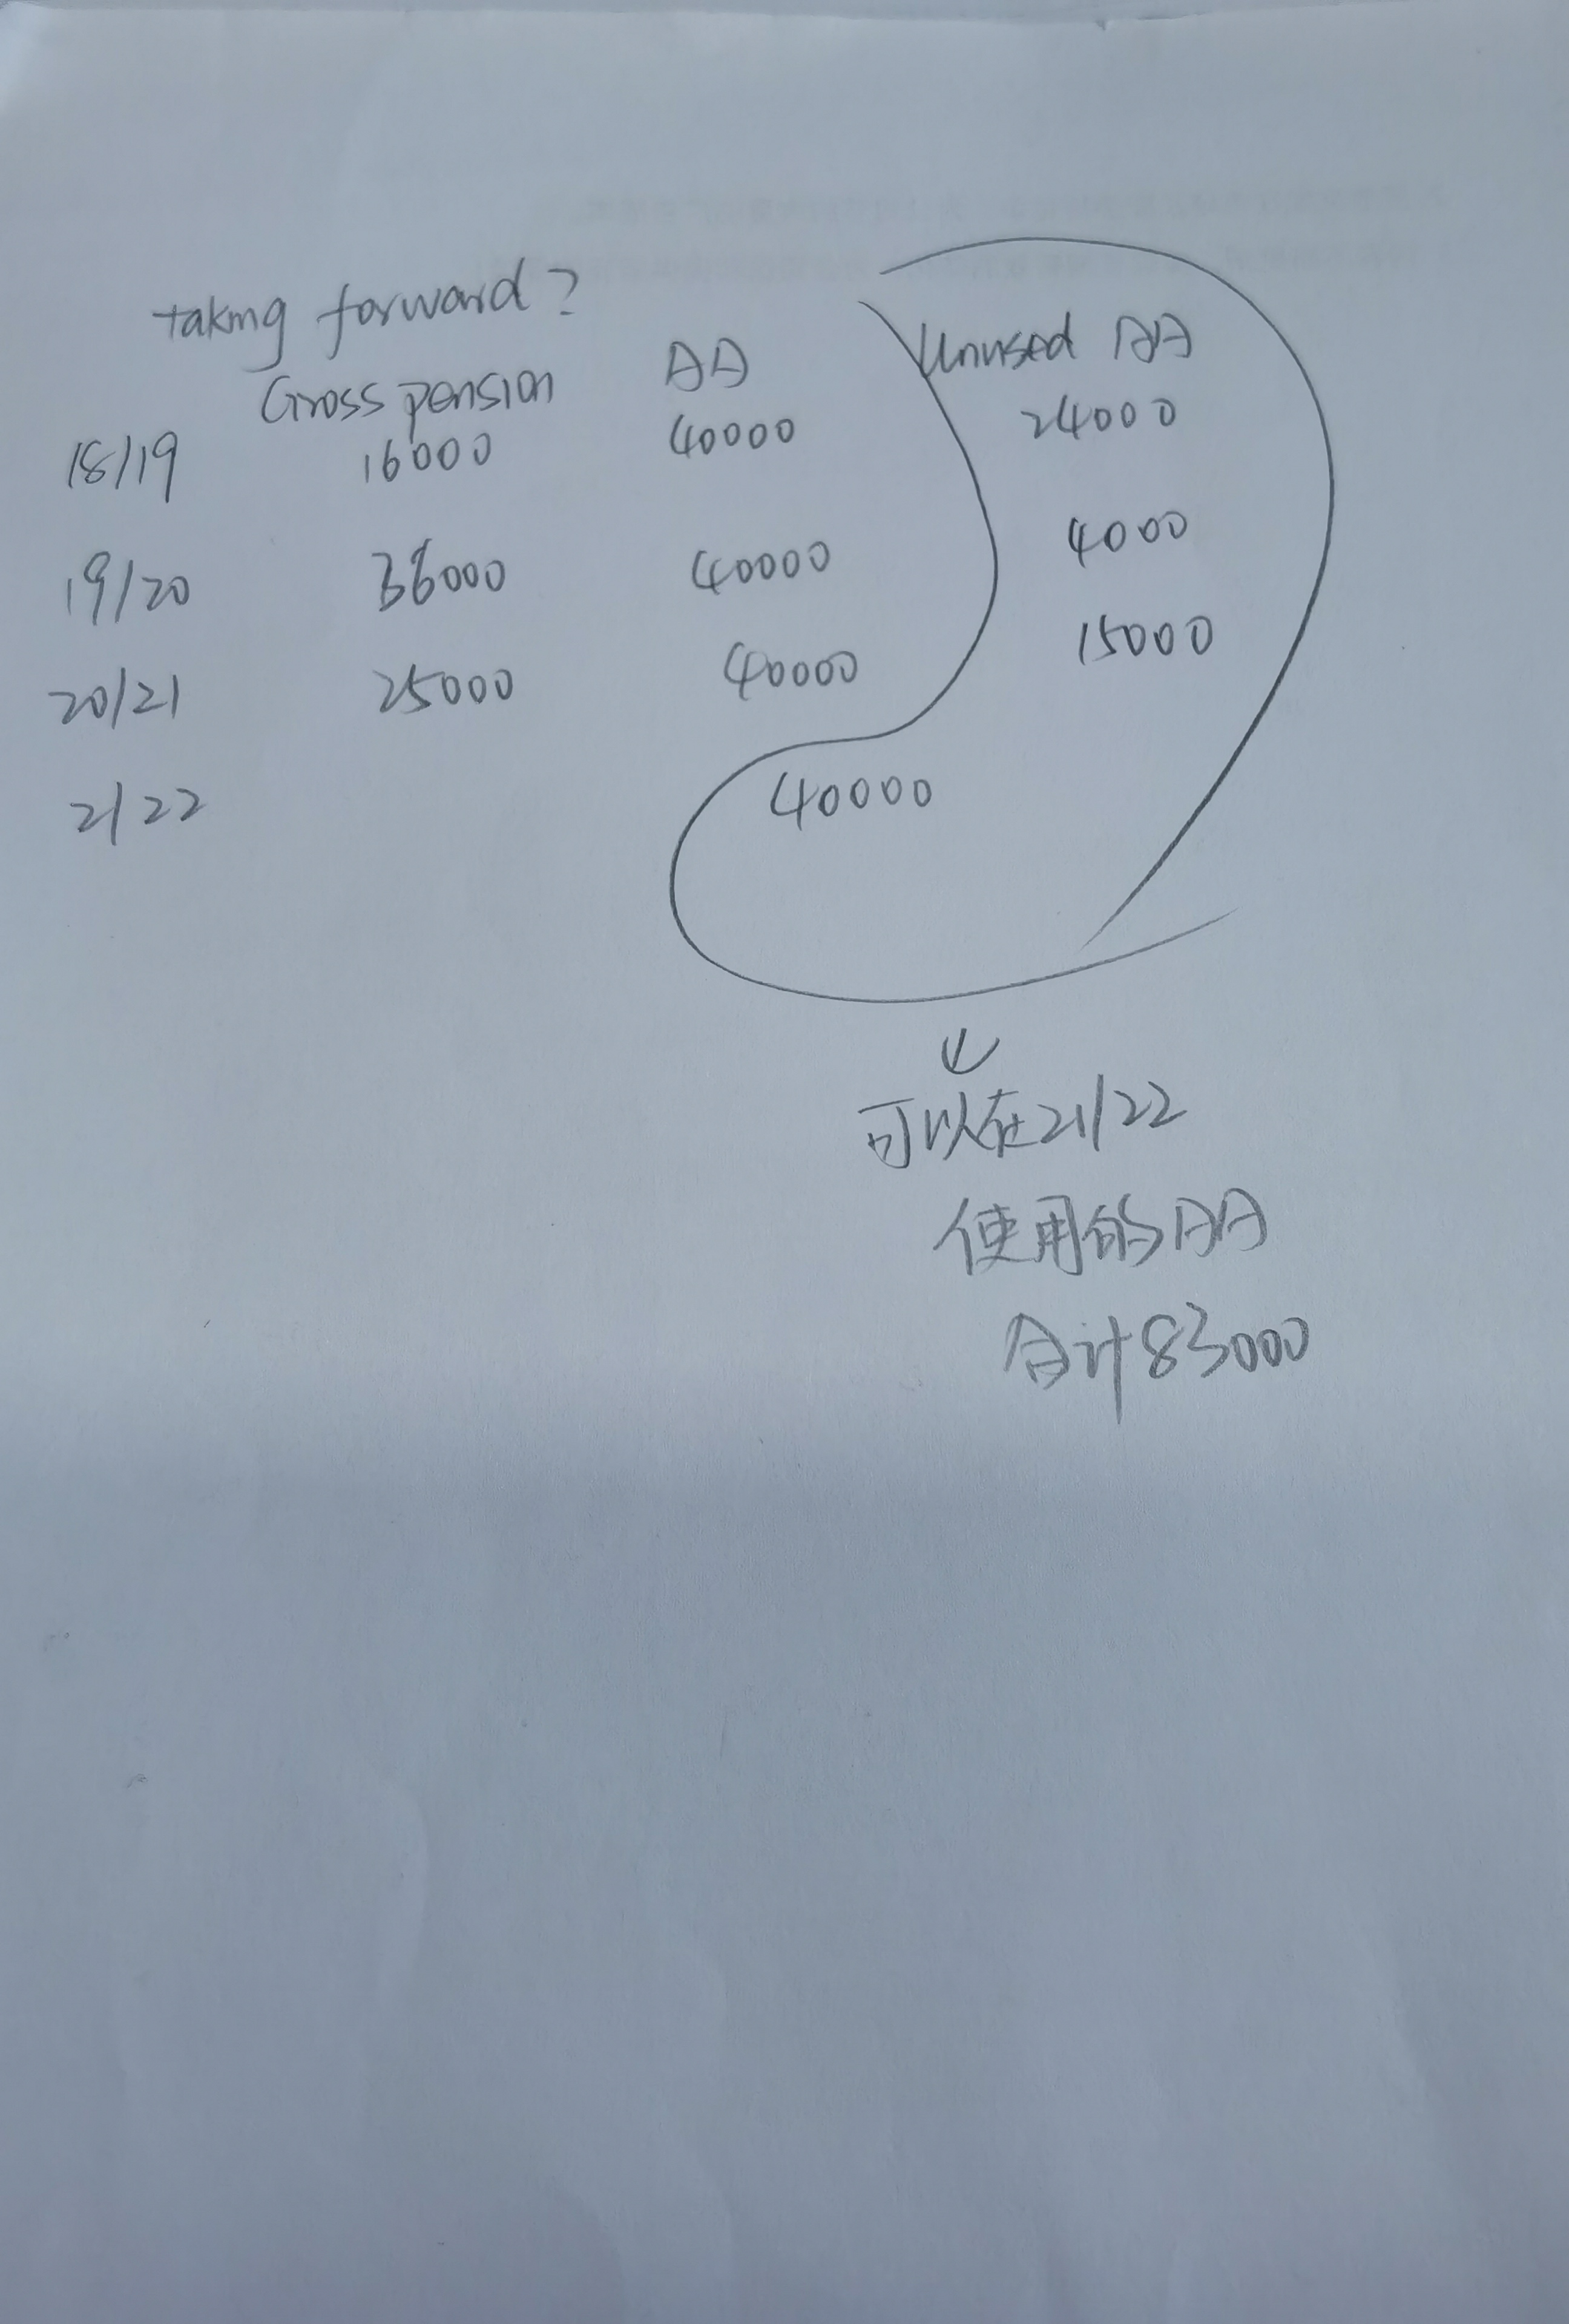 taking forward?
Gross pension AA Unused AA
18/19 16000 40000 24000
19/20 36000 40000 4000
20/21 25000 40000 15000
21/22 40000
可以在21/22
使用的AA
合计83000